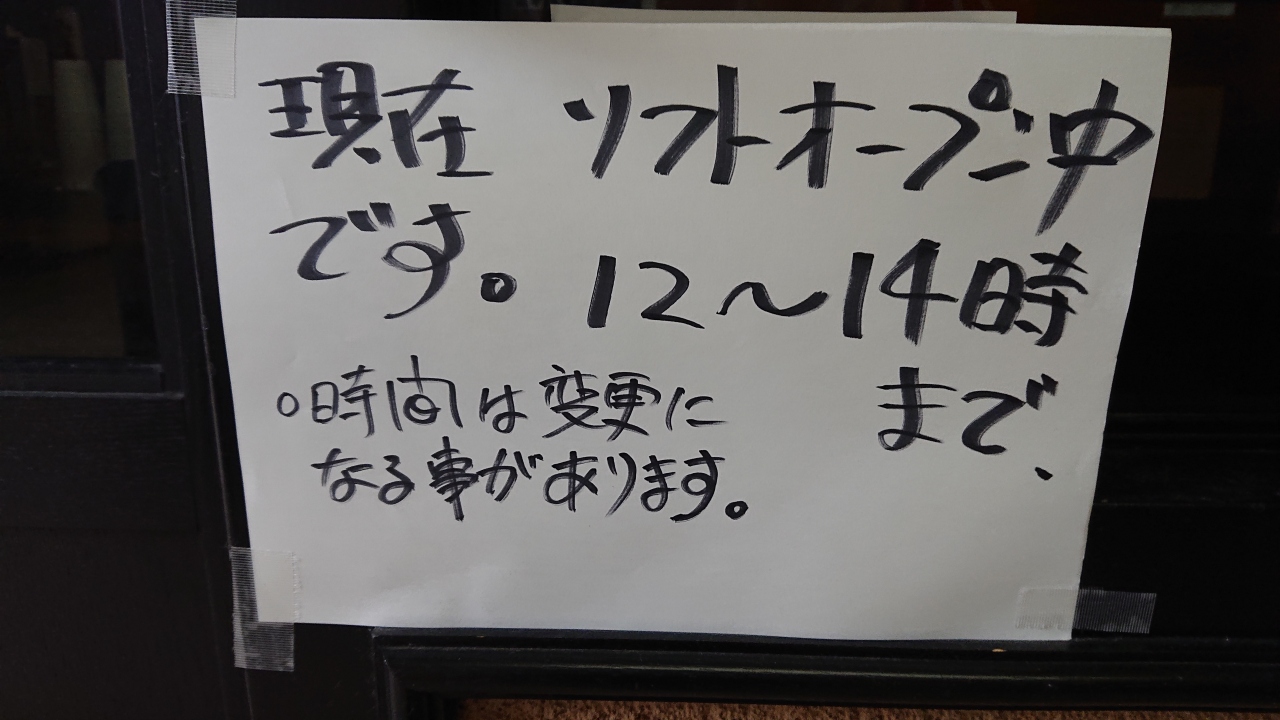 現在 ソフトオープン中
です。12〜14時
まで、
○時間は変更に
なる事があります。